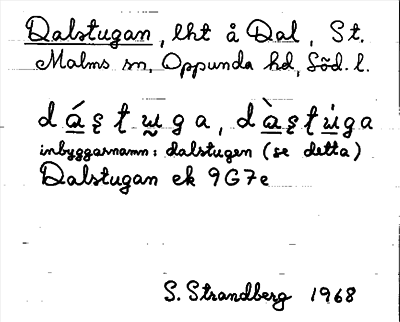 Dalstugan, lht å Dal, St.
Malms sn, Oppunda hd, Söd. l.
dá̲ş ţw̲̃ga, dà̲şţẁ̲ga
inbyggarnamn: dalstugen (se detta)
Dalstugan ek 9G7e
S. Strandberg 1968